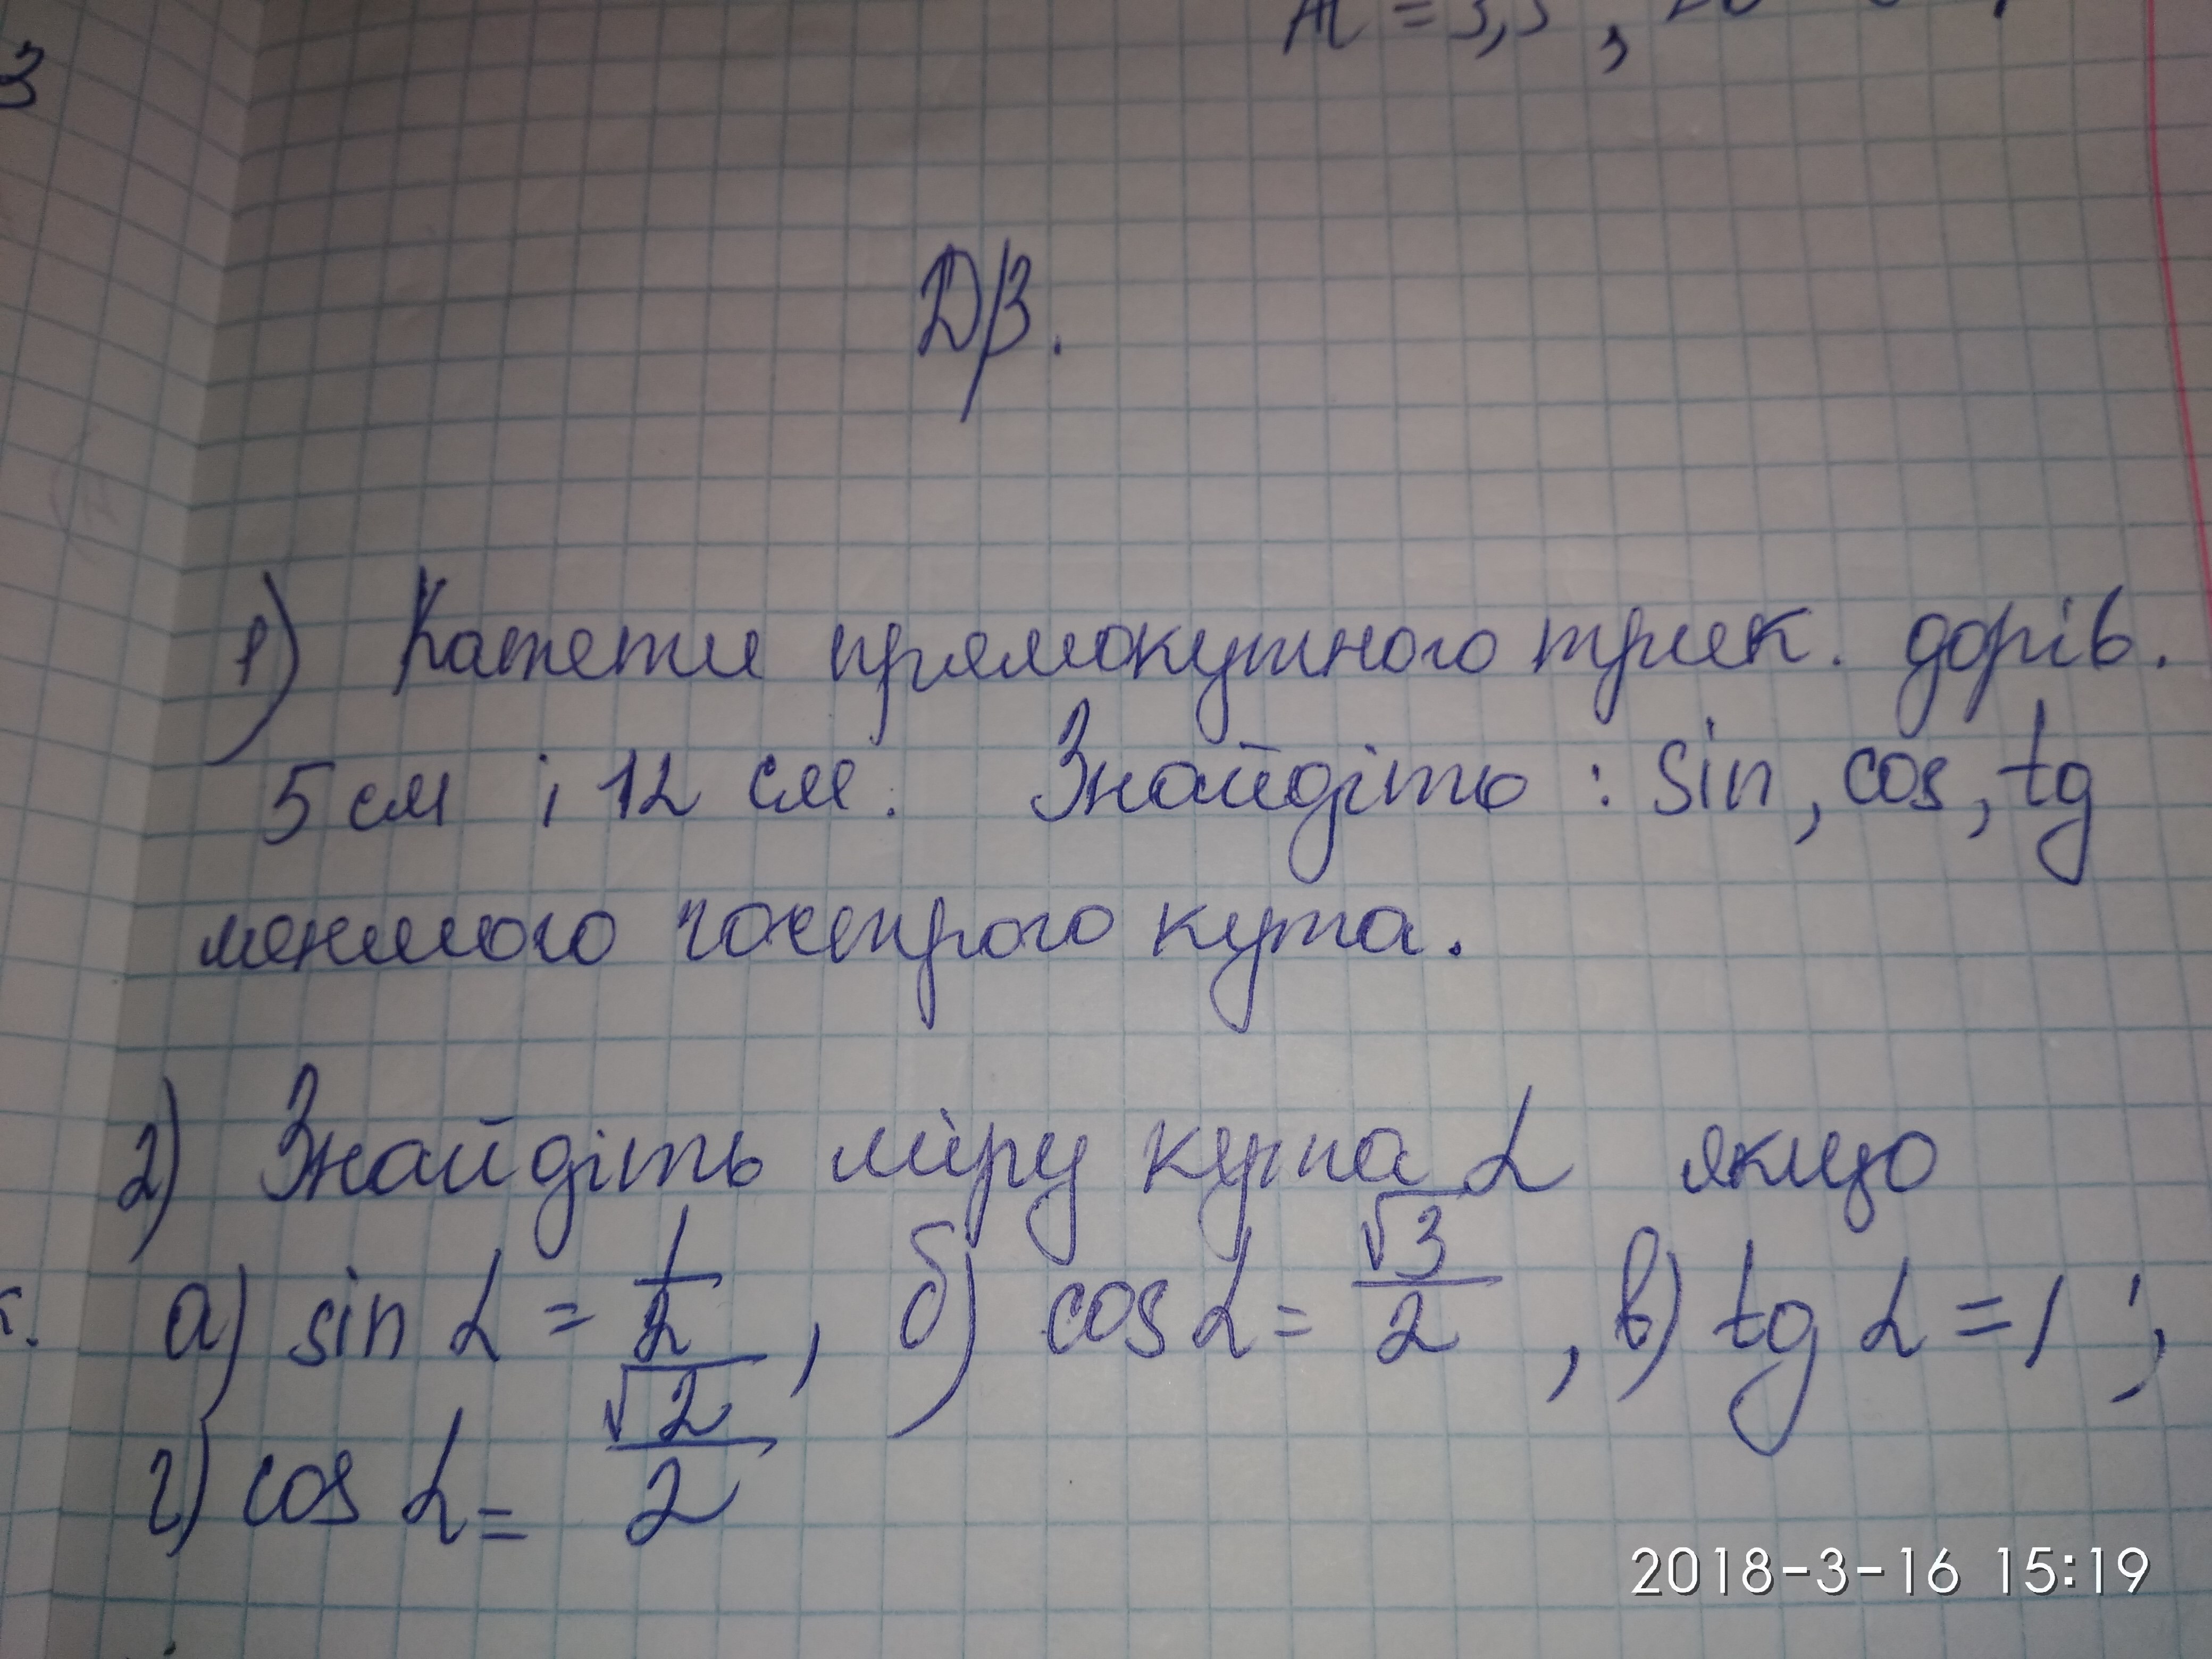 3
Д/З.
1) Катети прямокутного трик. дорів.
5 см і 12 см. Знайдіть : sin, cos, tg
меншого гострого кута.
2) Знайдіть міру кута α якщо
а) sin α = 1/2, б) cos α = √3/2, в) tg α = 1;
к.
г) cos α = √2/2
2018-3-16 15:19